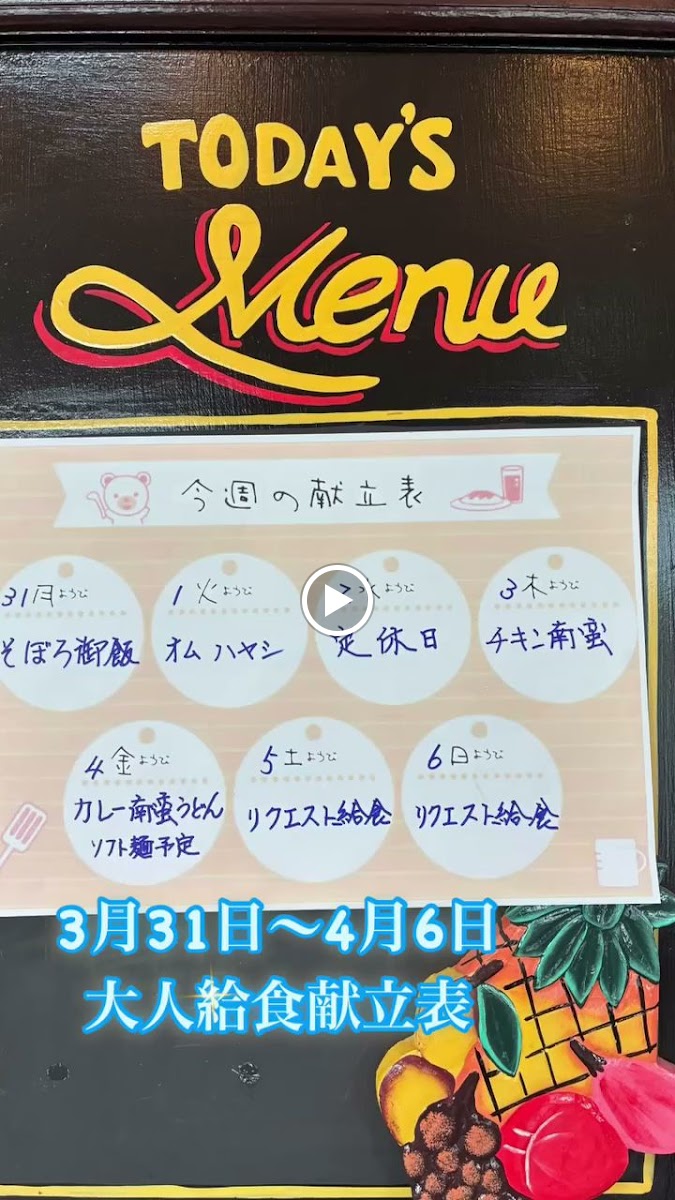 TODAY'S
Menu
今週の献立表
31 月ようび
そぼろ御飯
1 火ようび
オムハヤシ
2 水ようび
定休日
3 木ようび
チキン南蛮
4 金ようび
カレー南蛮うどん
ソフト麺予定
5 土ようび
リクエスト給食
6 日ようび
リクエスト給食
3月31日〜4月6日
大人給食献立表